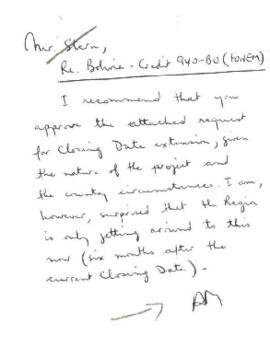 Mr. Stern,
Re. Bolivia - Credit 940-BO (FONEM)
I recommend that you
approve the attached request
for Closing Date extension, given
the nature of the project and
the country circumstances. I am,
however, surprised that the Region
is only getting around to this
now (six months after the
current Closing Date).